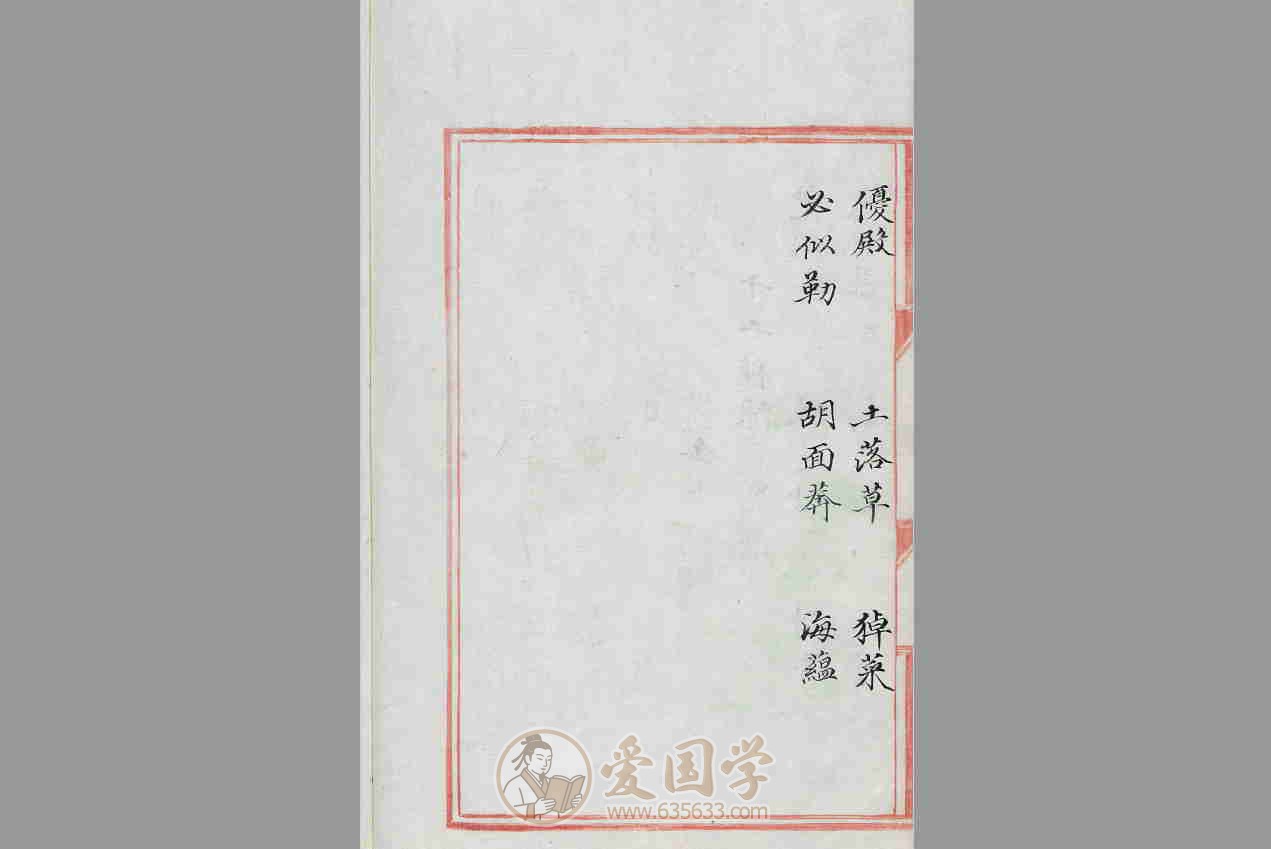 優殿 土落草 㹿菜
必似勒 胡面莾 海蘊
爱国学
www.635633.com